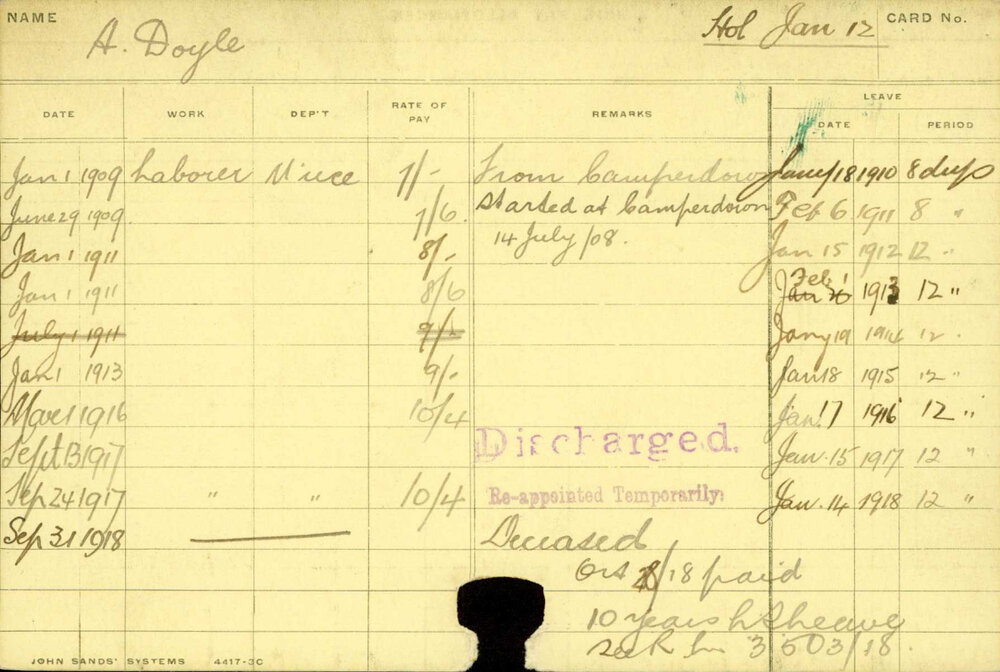 NAME A. Doyle Hol Jan 12 CARD No.
LEAVE
DATE WORK DEP'T RATE OF PAY REMARKS DATE PERIOD
Jan 1 1909 Laborer 7/- From Camperdown Jany 18 1910 8 days
June 29 1909 7/6 Started at Camperdown Feb 6 1911 8 "
Jan 1 1911 8/- 14 July /08. Jan 15 1912 12 "
Jan 1 1911 8/6 Feb 1 1913 12 "
July 1 1911 9/- Jany 19 1914 12 "
Jan 1 1913 9/- Jan 18 1915 12 "
Mar 1 1916 10/4 Jan. 17 1916 12 "
Sept 13 1917 Discharged. Jan. 15 1917 12 "
Sep 24 1917 " " 10/4 Re-appointed Temporarily. Jan. 14 1918 12 "
Sep 31 1918 Deceased
Oct /18 paid
10 years
3503/18.
JOHN SANDS' SYSTEMS 4417-3C